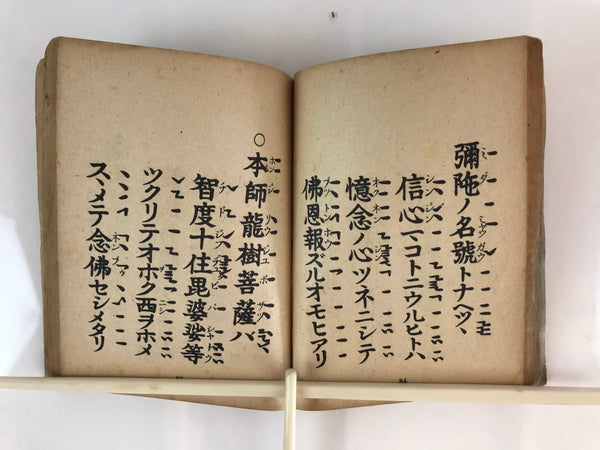 彌陁ノ名號トナヘツヽ
信心マコトニウルヒトハ
憶念ノ心ツネニシテ
佛恩報ズルオモヒアリ
○本師龍樹菩薩ハ
智度十住毘婆娑等
ツクリテオホク西ヲホメ
スヽメテ念佛セシメタリ